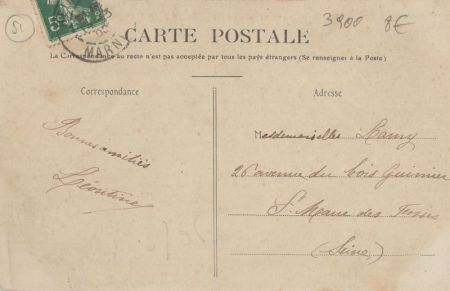 51
5
MARNE
3900 8€
CARTE POSTALE
La Correspondance au recto n'est pas acceptée par tous les pays étrangers (Se renseigner à la Poste)
Correspondance
Adresse
Bonnes amitiés
Léontine
Mesdemoiselles Lamy
26 avenue du bois Guimier
St Maur des Fossés
(Seine)